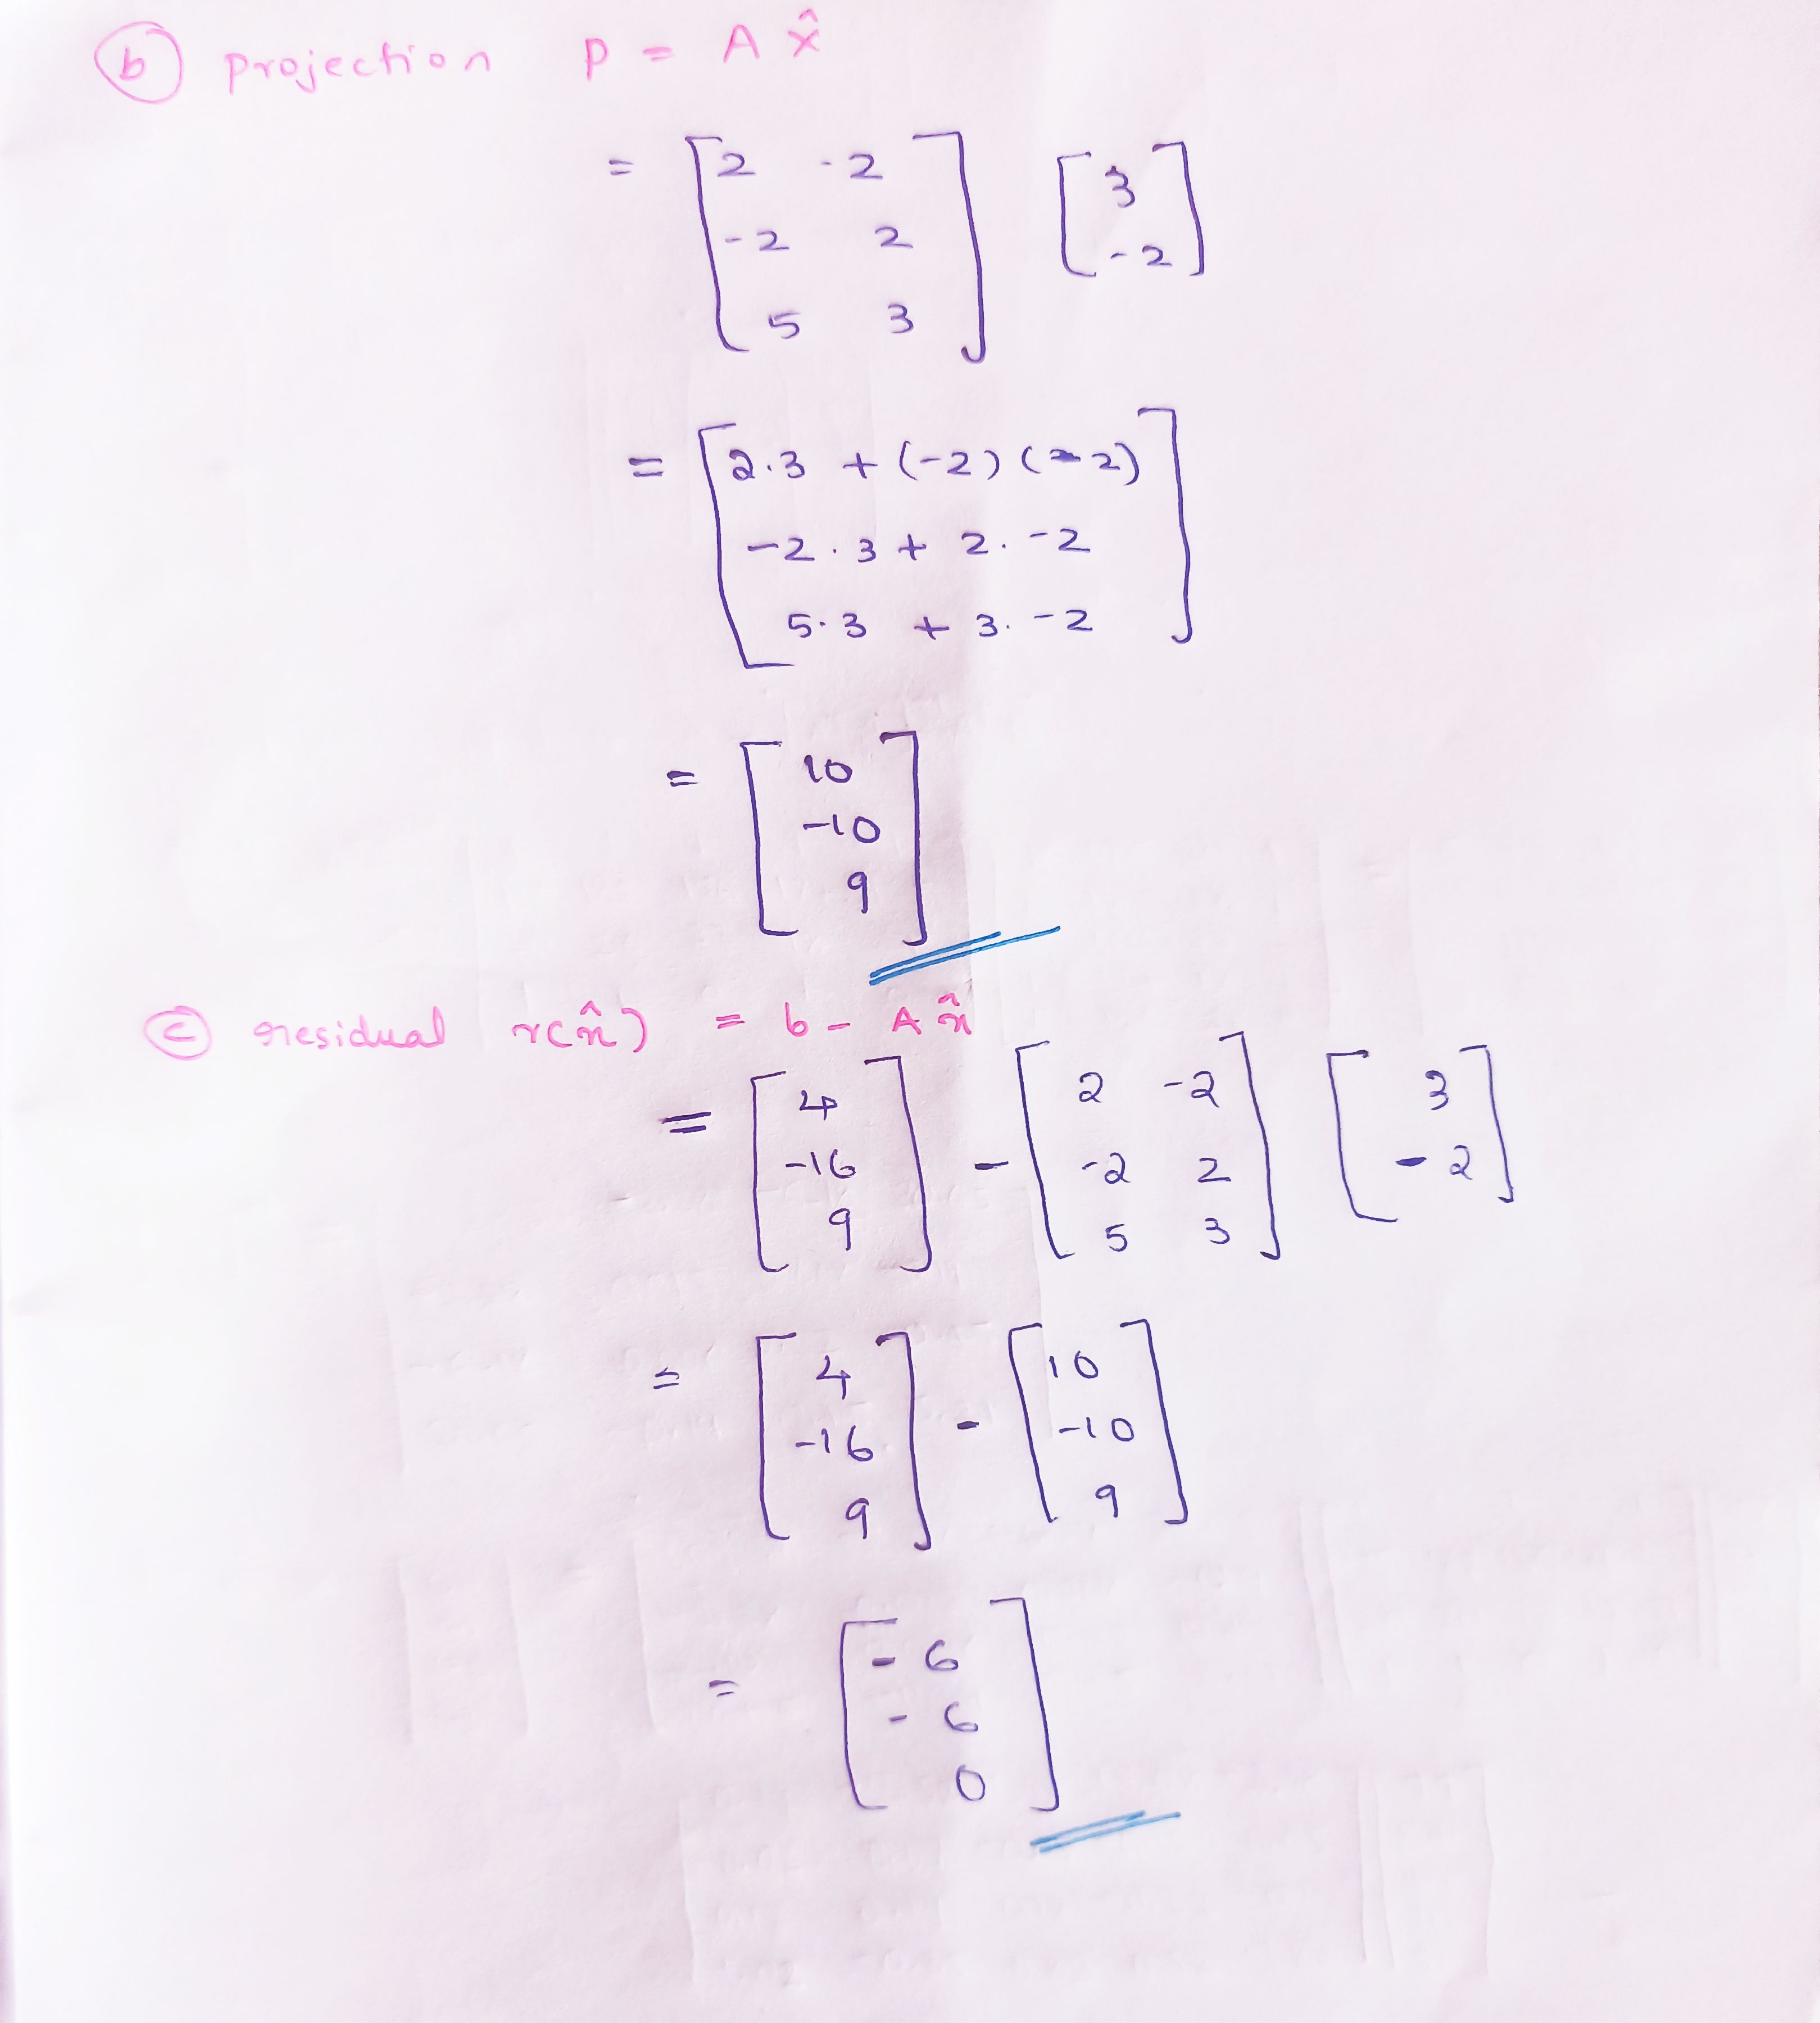 (b) projection p = A x̂
= [ 2 -2 ] [ 3 ]
[ -2 2 ] [ -2 ]
[ 5 3 ]
= [ 2.3 + (-2) (-2) ]
[ -2 . 3 + 2. -2 ]
[ 5.3 + 3. -2 ]
= [ 10 ]
[ -10 ]
[ 9 ]
(c) residual r(x̂) = b - A x̂
= [ 4 ] - [ 2 -2 ] [ 3 ]
[ -16 ] [ -2 2 ] [ -2 ]
[ 9 ] [ 5 3 ]
= [ 4 ] - [ 10 ]
[ -16 ] [ -10 ]
[ 9 ] [ 9 ]
= [ -6 ]
[ -6 ]
[ 0 ]